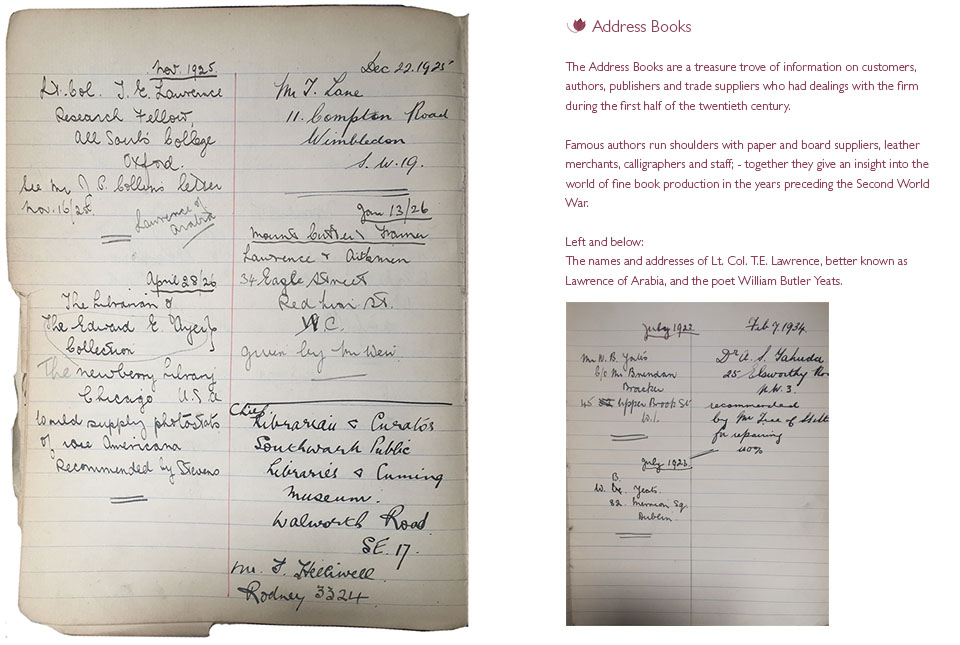 Nov. 1925
Lt. Col. T. E. Lawrence
Research Fellow,
All Souls College
Oxford.
See Mr J. P. Collins letter
Nov. 16/25.
Lawrence of
Arabia
April 28/26
The Librarian of
The Edward E. Ayer
Collection
The Newberry Library
Chicago U.S.A
would supply photostats
of rare Americana
Recommended by Stevens
Dec 22.1925
Mr T. Lane
11. Compton Road
Wimbledon
S.W.19.
Jan 13/26
Mount Cutter & Framer
Lawrence & Aitkmen
34 Eagle Street
Red Lion St.
W.C.
given by Mr Weir
Chief
Librarian & Curator
Southwark Public
Libraries & Cuming
Museum.
Walworth Road
SE. 17.
Mr. F. Helliwell
Rodney 3324
Address Books
The Address Books are a treasure trove of information on customers,
authors, publishers and trade suppliers who had dealings with the firm
during the first half of the twentieth century.
Famous authors run shoulders with paper and board suppliers, leather
merchants, calligraphers and staff; - together they give an insight into the
world of fine book production in the years preceding the Second World
War.
Left and below:
The names and addresses of Lt. Col. T.E. Lawrence, better known as
Lawrence of Arabia, and the poet William Butler Yeats.
July 1922
Mr W. B. Yeats
C/o Mr Brendan
Bracken
45 Upper Brook St
W.1.
July 1923
B.
W. Yeats.
82. Merrion Sq.
Dublin.
Feb 7. 1934.
Dr A. S. Yahuda
25 Elsworthy Ro
N.W. 3.
recommended
by Mr Tree of
for repairing